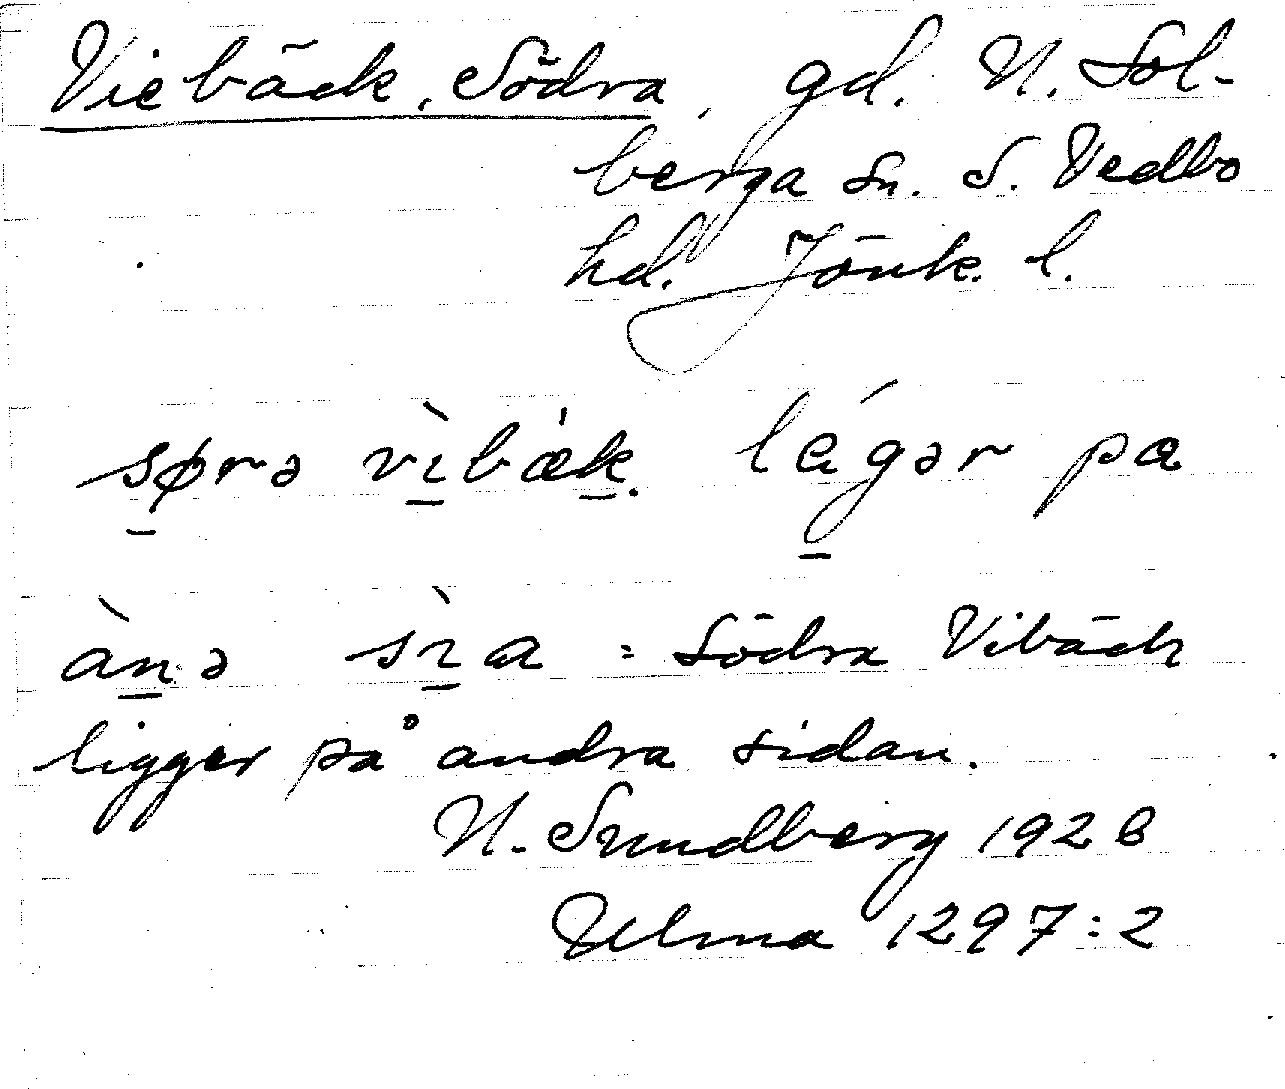 Viebäck, Södra, gd. N. Sol-
berga sn. S. Vedbo
hd. Jönk. l.
sørə vìbæk. légər pa
ànə sìa = Södra Vibäck
ligger på andra sidan.
N. Sundberg 1928
Ulma 1297:2